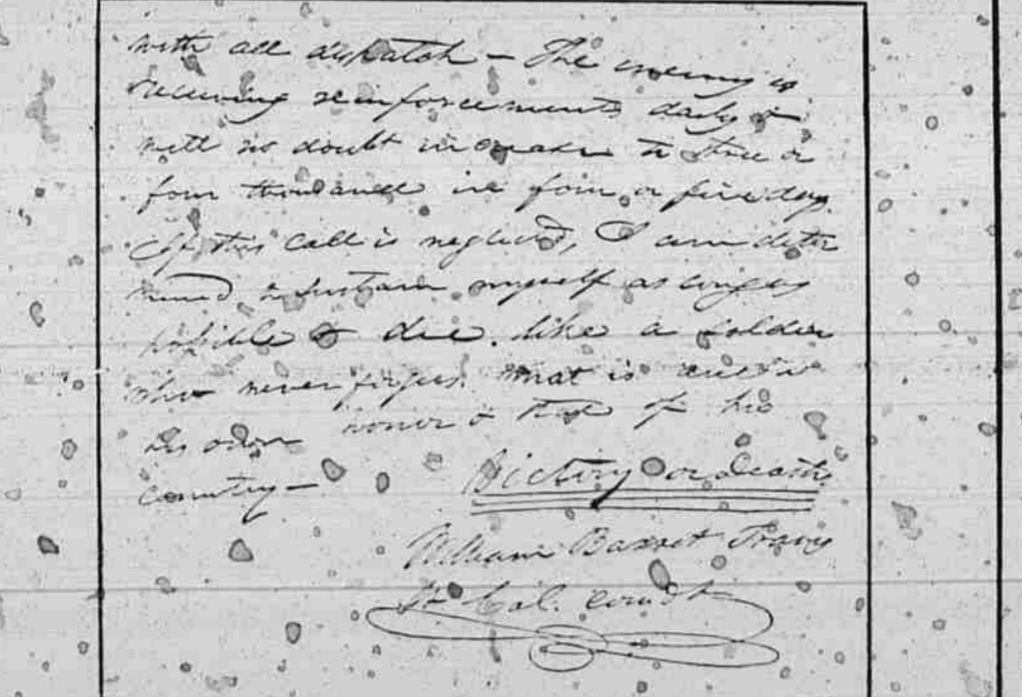 with all dispatch — The enemy is
receiving reinforcements daily &
will no doubt increase to three or
four thousand in four or five days.
If this call is neglected, I am deter
mined to sustain myself as long as
possible & die like a soldier
who never forgets what is due to
his own honor & that of his
country —
Victory or Death
William Barret Travis
Lt. Col. comdt